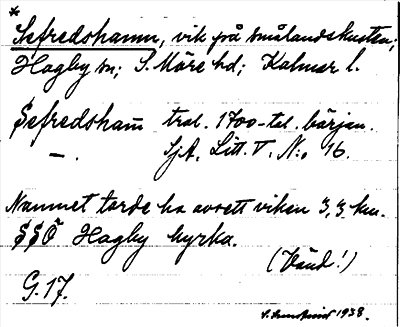 *
Sefredshamn, vik på smålandskusten;
Hagby sn; S. Möre hd; Kalmar l.
Sefredsham̅ trol. 1700-tal. början.
—. SjA. Litt. T. N:o 16.
Namnet torde ha avsett viken 3,3 km.
SSÖ Hagby kyrka.
(Vänd!)
G. 17.
1938.